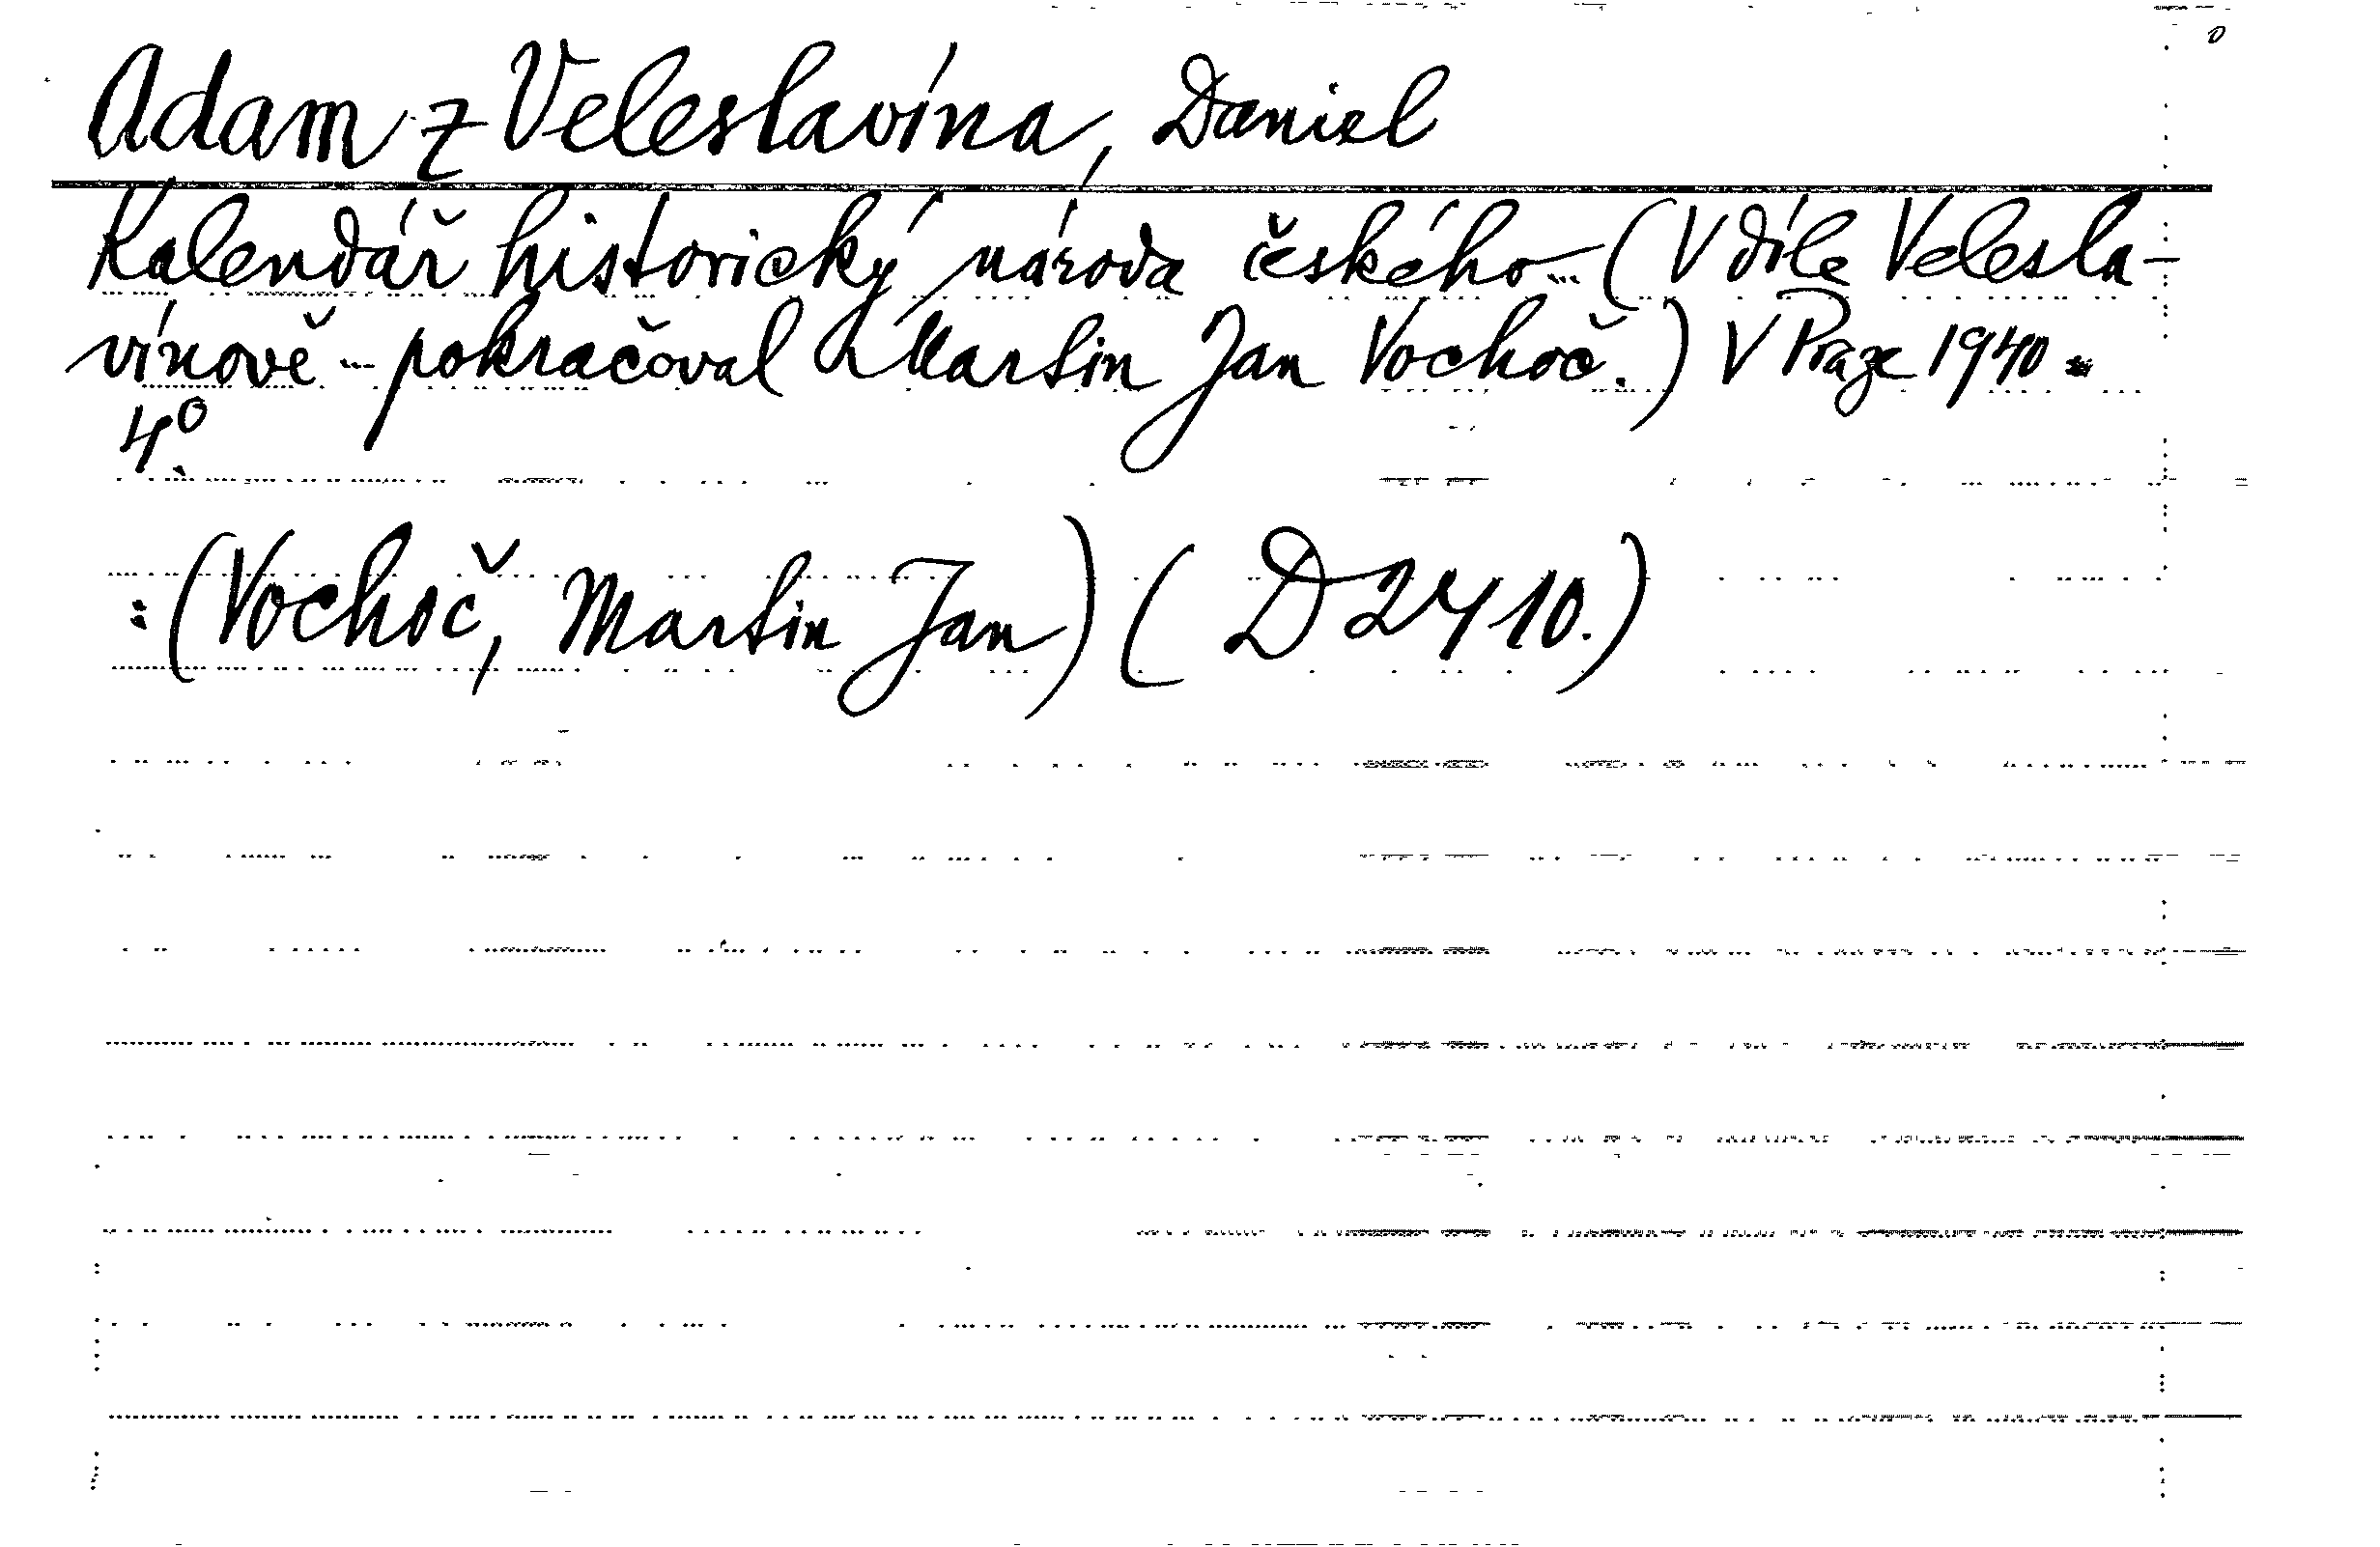 Adam z Veleslavína, Daniel
Kalendář historický národa českého... (V díle Velesla-
vínově ... pokračoval Martin Jan Vochoč.) V Praze 1940.
4°
: (Vochoč, Martin Jan) (D 2410.)